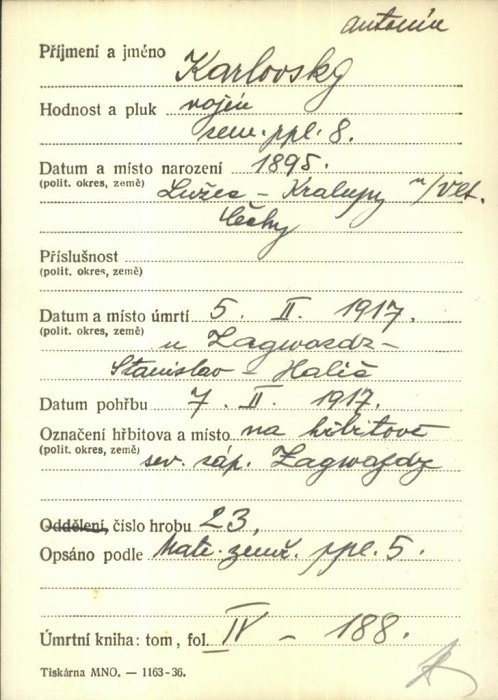 Antonín
Příjmení a jméno Karlovský
Hodnost a pluk vojín
zem. ppl. 8.
Datum a místo narození 1895.
(polit. okres, země) Lužec - Kralupy n/Vlt.
Čechy
Příslušnost
(polit. okres, země)
Datum a místo úmrtí 5. II. 1917.
(polit. okres, země)
u Zagwozdz-
Stanislav - Halič
Datum pohřbu 7. II. 1917.
Označení hřbitova a místo na hřbitově
(polit. okres, země)
sev. záp. Zagwozdz
Oddělení, číslo hrobu 23,
Opsáno podle Matr. zemř. ppl. 5.
Úmrtní kniha: tom, fol. IV - 188.
Tiskárna MNO. — 1163-36.